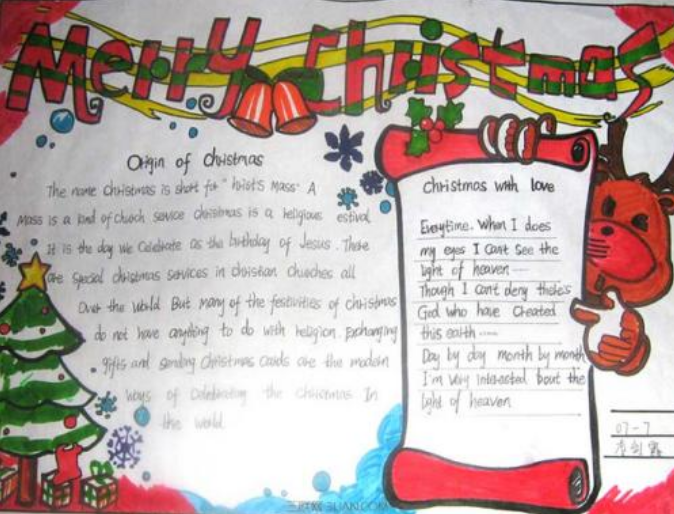 Merry Christmas
Origin of Christmas
The name Christmas is short for "hrists Mass" A
Mass is a kind of chuch service christmas is a religious estival
It is the day we Celebrate as the birthday of Jesus. There
are special christmas services in christian chuches all
Over the world But many of the festivities of christmas
do not have anything to do with religion. Exchanging
gifts and sending Christmas Cards are the modern
ways of Celebrating the christmas In
the world.
Christmas with love
Everytime. When I does
my eyes I Cant See the
light of heaven ——
Though I cant deny there's
God who have Created
this earth ——
Day by day month by month
I'm very interested bout the
light of heaven
07-7
3LIAN.COM